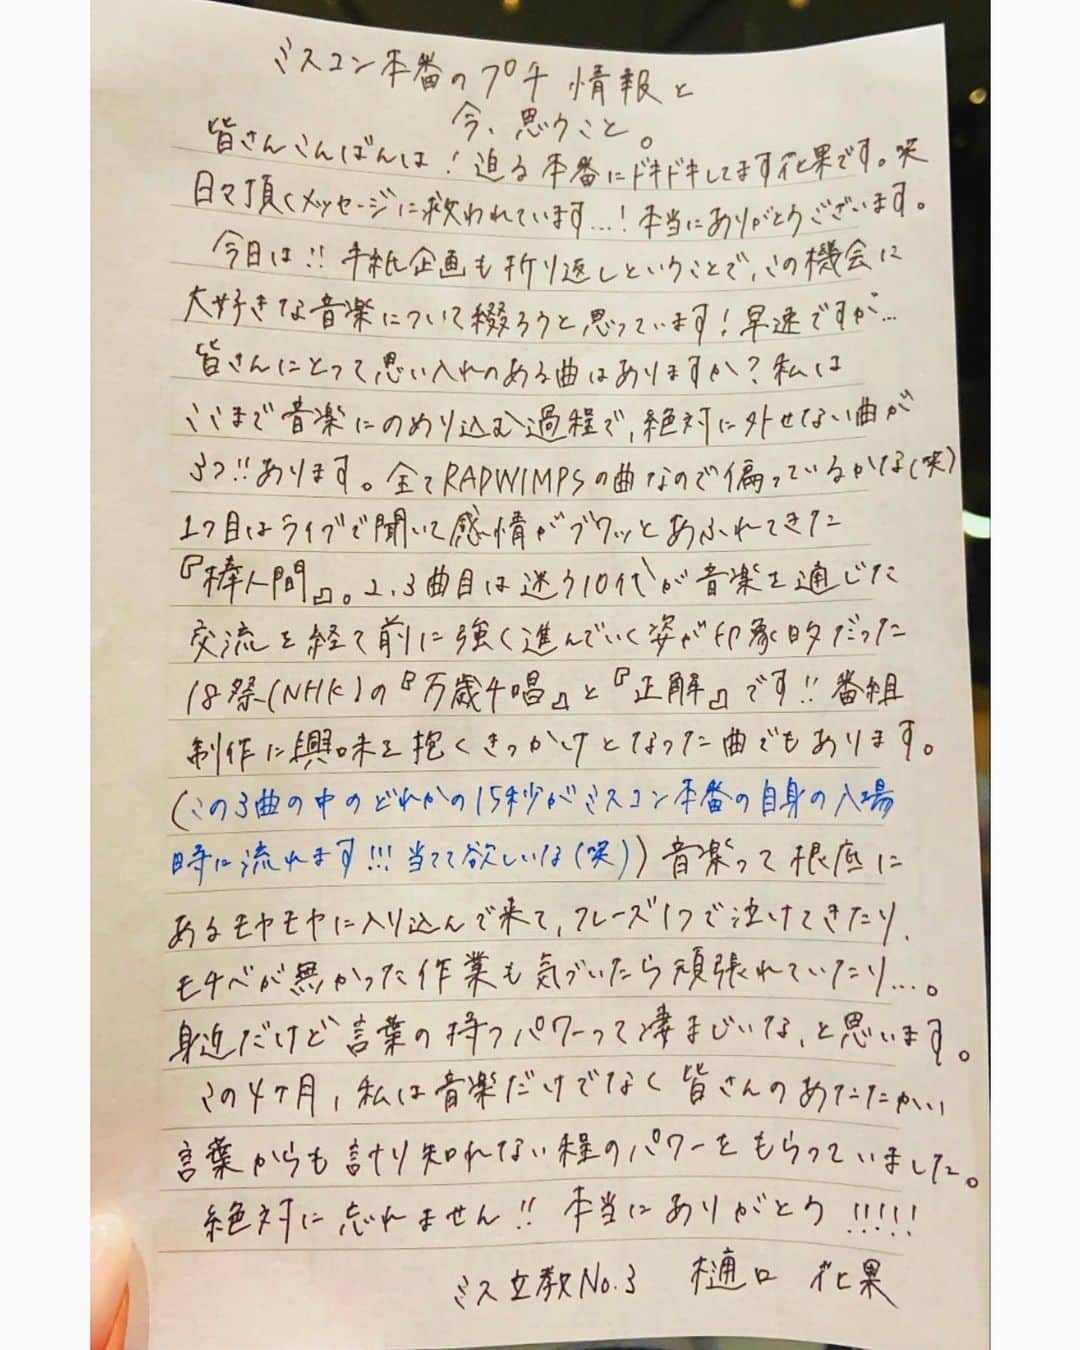 ミスコン本番のプチ情報と
今、思うこと。
皆さんこんばんは!迫る本番にドキドキしてます花果です。笑
日々頂くメッセージに救われています…!本当にありがとうございます。
今日は!!手紙企画も折り返しということで、この機会に
大好きな音楽について綴ろうと思っています!早速ですが…
皆さんにとって思い入れのある曲はありますか?私は
ここまで音楽にのめり込む過程で、絶対に外せない曲が
3つ!!あります。全てRADWIMPSの曲なので偏っているかな(笑)
1つ目はライブで聞いて感情がブワッとあふれてきた
『棒人間』。2、3曲目は迷う10代が音楽を通じた
交流を経て前に強く進んでいく姿が印象的だった
18祭(NHK)の『万歳千唱』と『正解』です!!番組
制作に興味を抱くきっかけとなった曲でもあります。
(この3曲の中のどれかの15秒がミスコン本番の自身の入場
時に流れます!!!当てて欲しいな(笑))音楽って根底に
あるモヤモヤに入り込んで来て、フレーズ1つで泣けてきたり、
モチベが無かった作業も気づいたら頑張れていたり…。
身近だけど言葉の持つパワーって凄まじいな、と思います。
この4ヶ月、私は音楽だけでなく皆さんのあたたかい
言葉からも計り知れない程のパワーをもらっていました。
絶対に忘れません!!本当にありがとう!!!!!
ミス立教No.3 樋口 花果